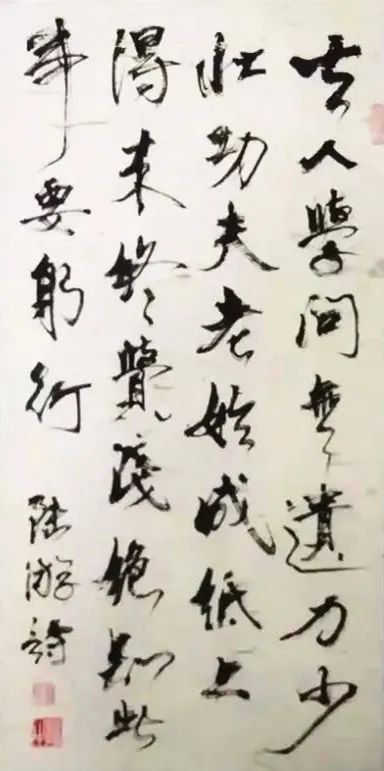 古人學問無遺力少
壯功夫老始成紙上
得来終覺淺絶知此
事要躬行
陸游詩